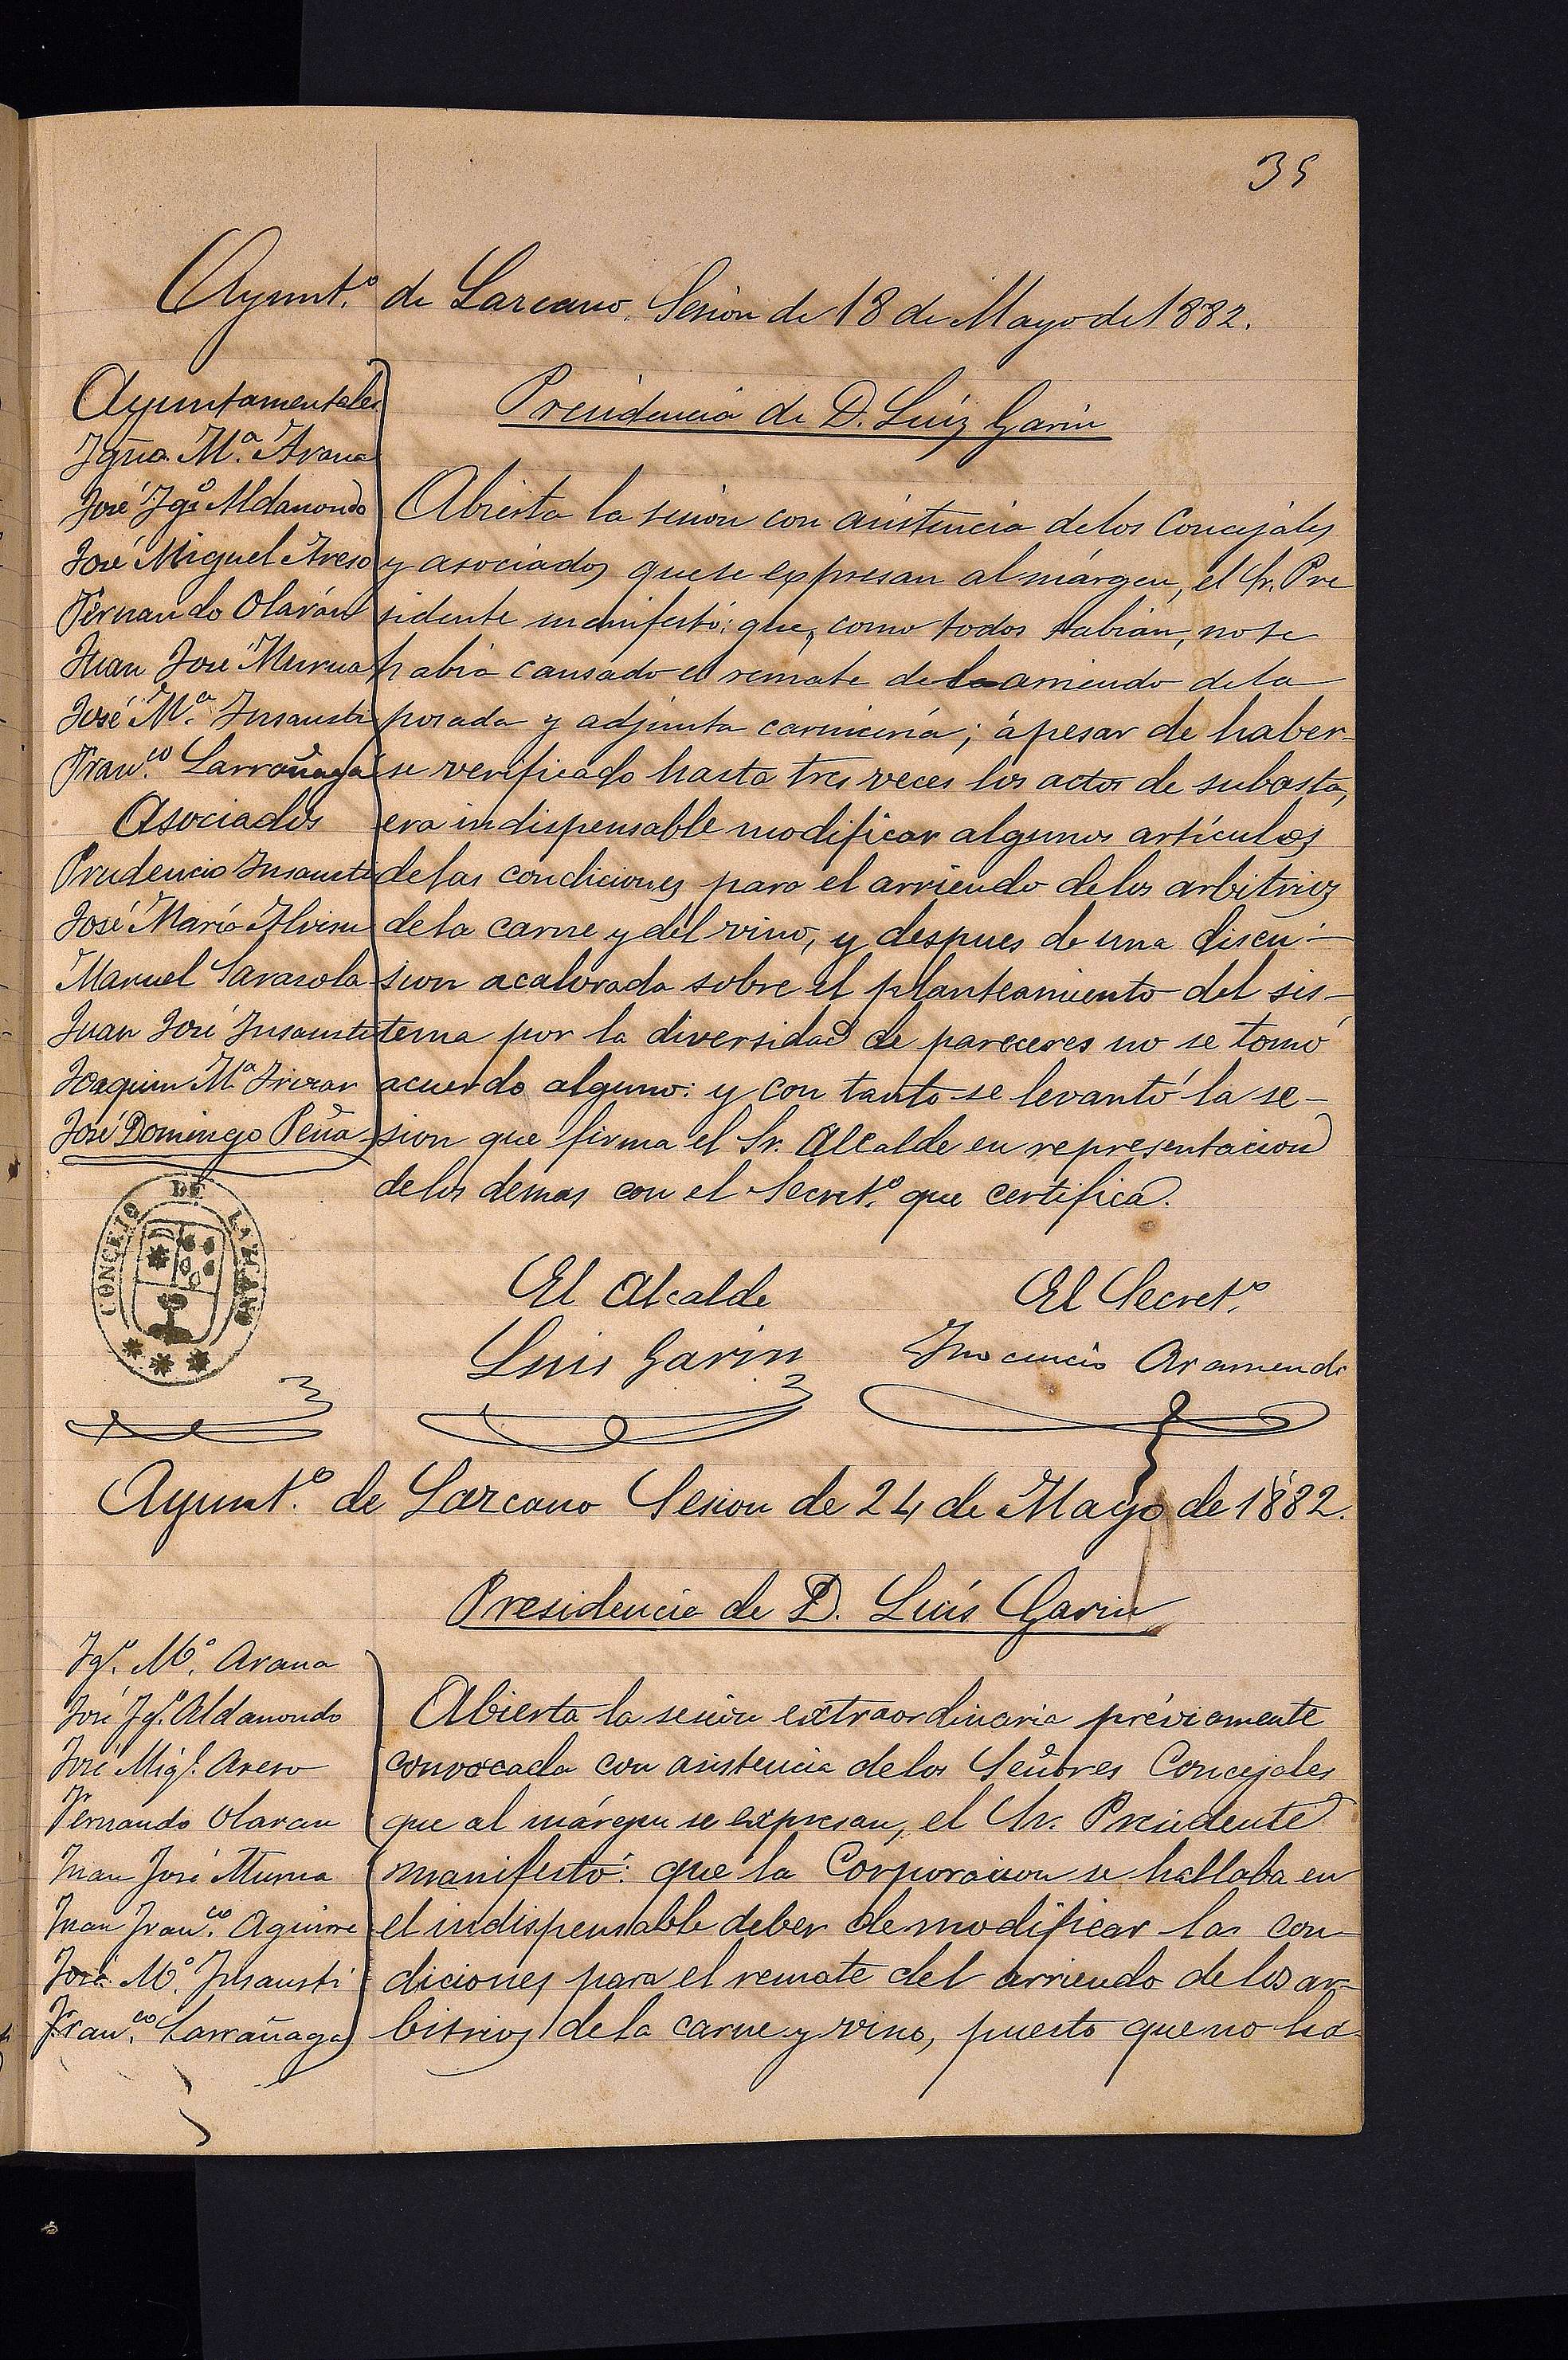 35
Ayunt.º de Lazcano. Sesión de 18 de Mayo de 1882.
Presidencia de D. Luiz Garin
Ayuntamentales
Ignº. M.ª Arana
José Igº Aldanondo
José Miguel Areso
Fernando Olarán
Juan José Murua
José M.ª Insausti
Fran.co Larrañaga
Asociados
Prudencio Insausti
José María Alvisu
Manuel Sarasola
Juan José Insausti
Joaquin M.ª Irizar
José Domingo Peña
Abierta la sesion con asistencia de los Concejales
y asociados que se expresan al márgen, el Sr. Pre
sidente manifestó: que, como todos sabían, no se
habia causado el remate de la arriendo de la
posada y adjunta carnicería; ápesar de haber-
se verificado hasta tres veces los actos de subasta,
era indispensable modificar algunos artículos
de las condiciones para el arriendo de los arbitrios
de la carne y del vino, y despues de una discu-
sion acalorada sobre el planteamiento del sis-
tema por la diversidad de pareceres no se tomó
acuerdo alguno: y con tanto se levantó la se-
sion que firma el Sr. Alcalde en representacion
de los demas con el Secret.º que certifica.
CONCEJO DE LAZCANO
El Alcalde
Luis Garin
El Secret.º
Inocencio Aramendi
Ayunt.º de Lazcano Sesion de 24 de Mayo de 1882.
Presidencia de D. Luís Garin
Igº. Mª. Arana
José Igº. Aldanondo
José Migl. Areso
Fernando Olaran
Juan José Murua
Juan Fran.co Aguirre
José Mª. Insausti
Fran.co Larrañaga
Abierta la sesion extraordinaria préviamente
convocada con asistencia de los Señores Concejales
que al márgen se expresan, el Sr. Presidente
manifestó: que la Corporacion se hallaba en
el indispensable deber de modificar las con-
diciones para el remate del arriendo de los ar-
bitrios de la carne y vino, puesto que no ha-